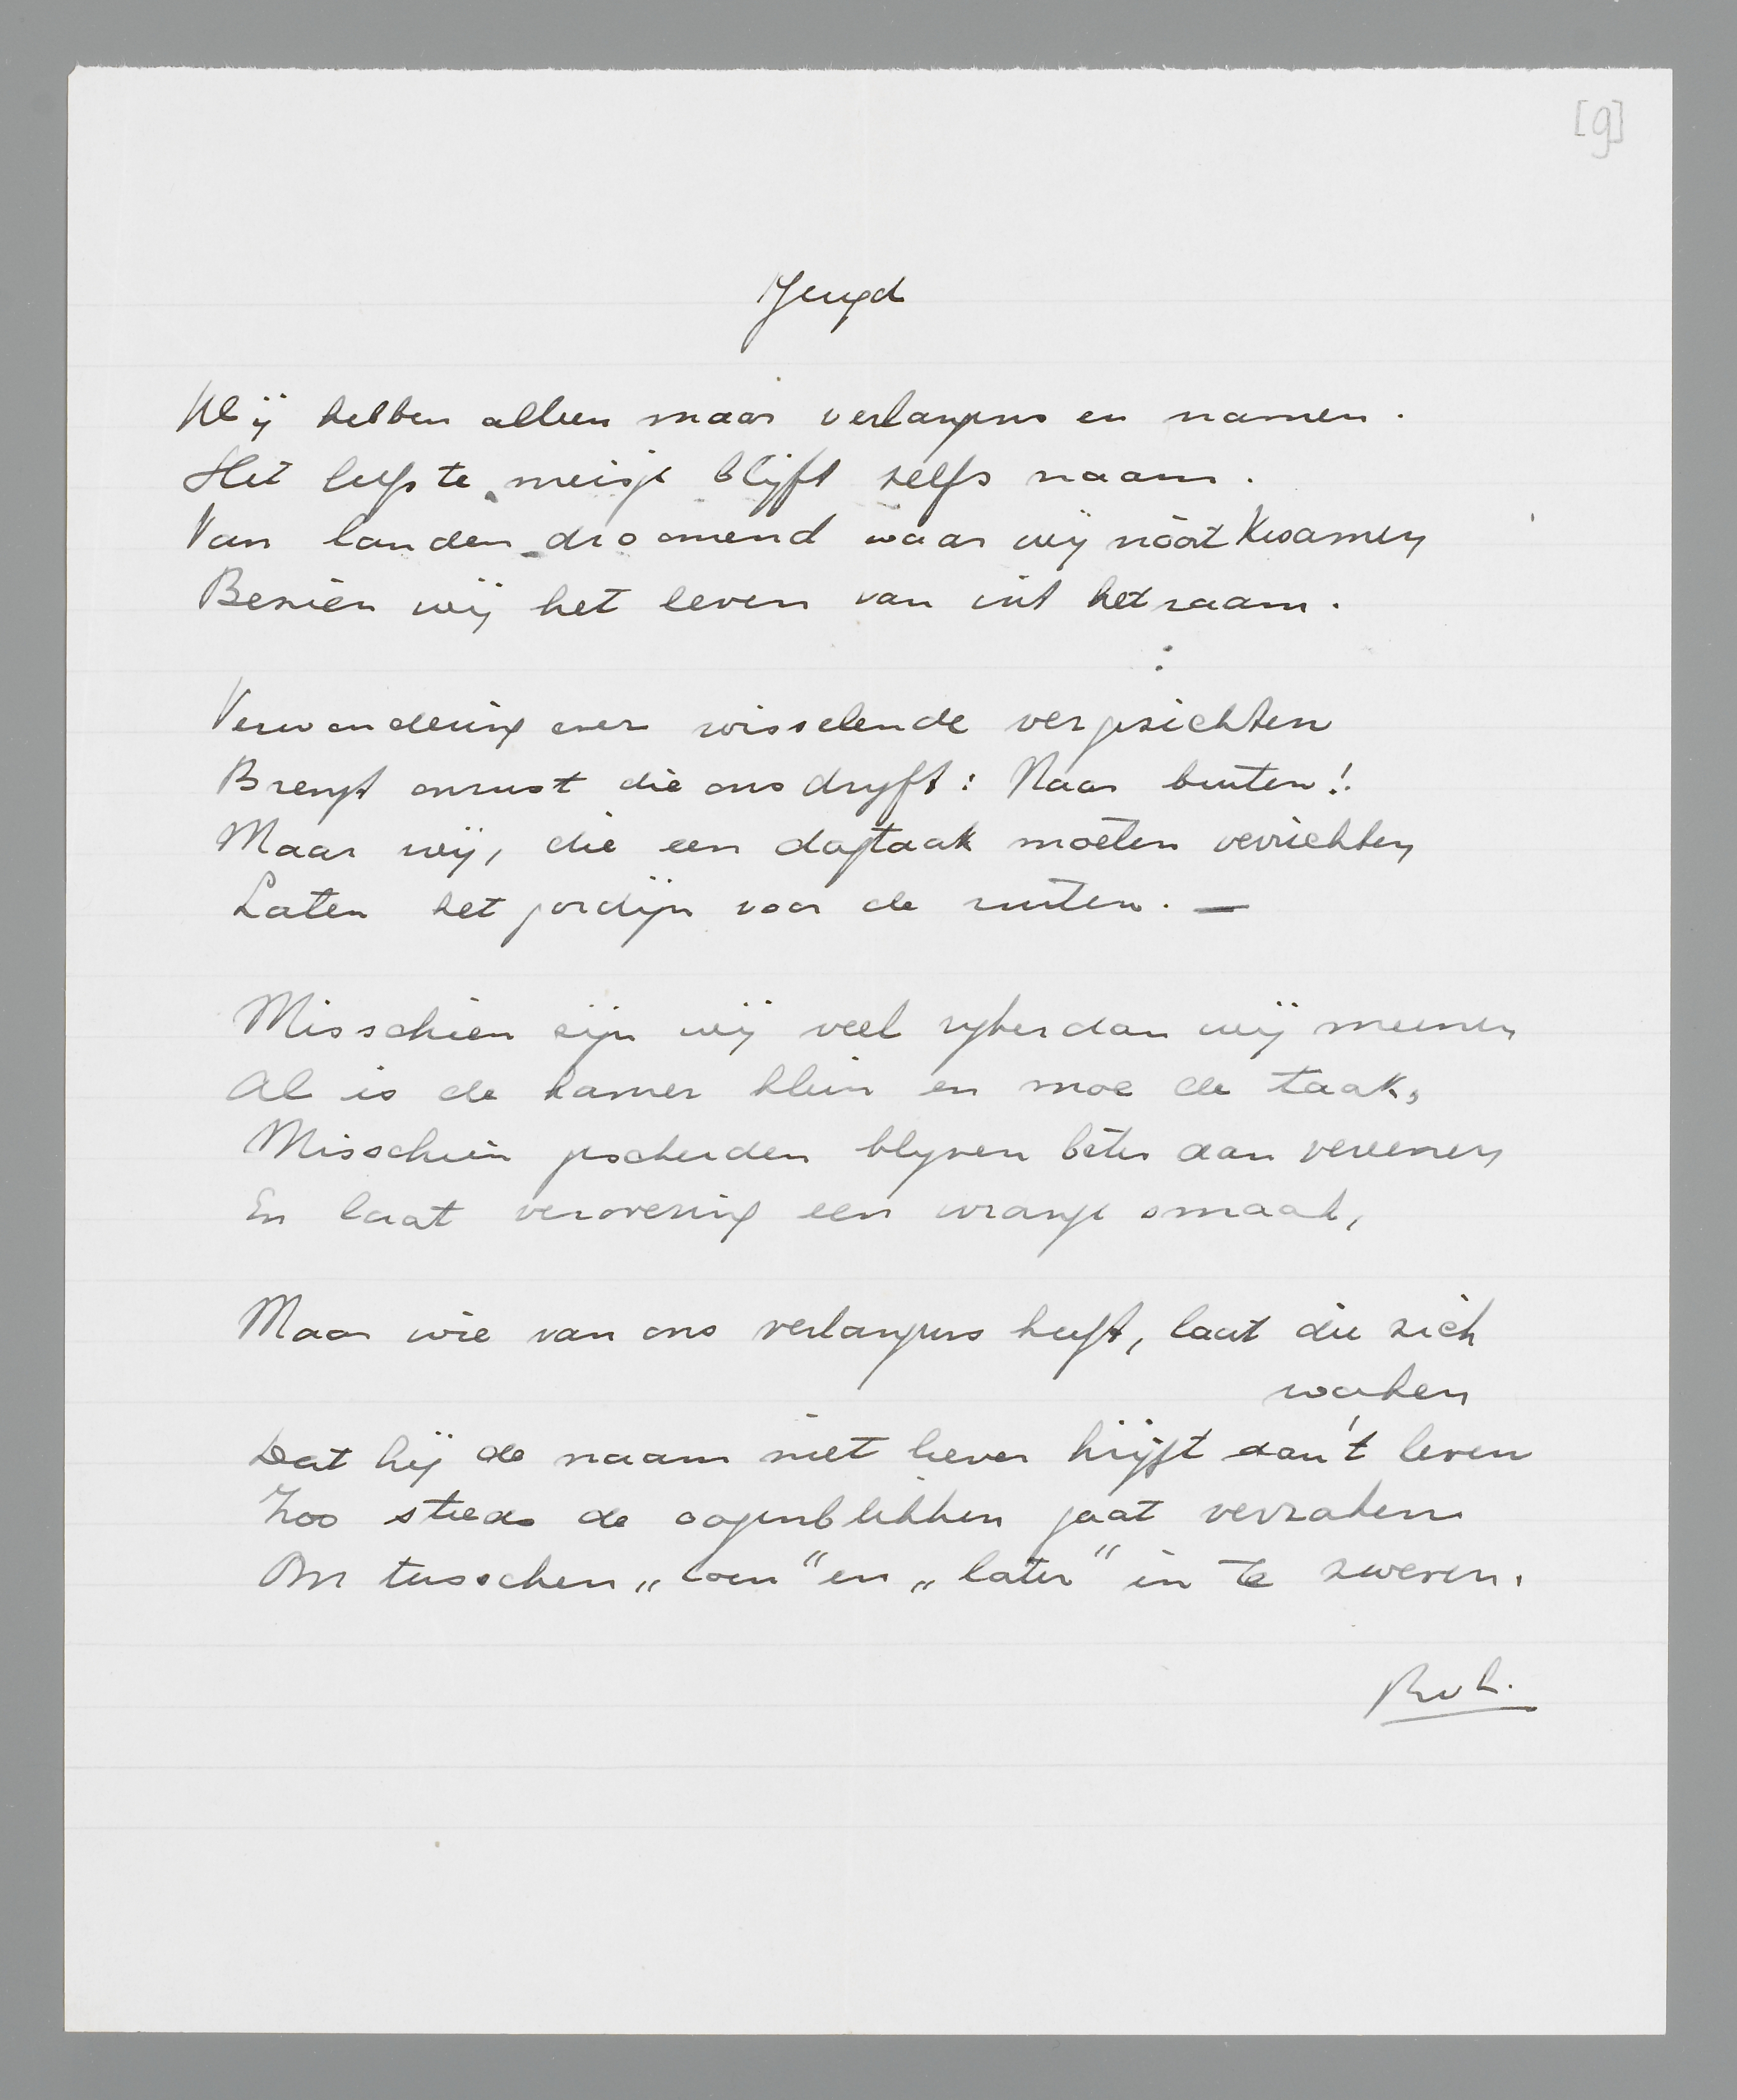 [9]
Jeugd
Wij hebben alleen maar verlangens en namen.
Het liefste meisje blijft zelfs naam.
Van landen droomend waar wij nooit kwamen
Bezien wij het leven van uit het raam.
Verwondering over wisselende vergezichten
Brengt onrust die ons drijft: Naar buiten!
Maar wij, die een dagtaak moeten verrichten
Laten het gordijn voor de ruiten. —
Misschien zijn wij veel rijker dan wij meenen
Al is de kamer klein en moe de taak,
Misschien gescheiden blijven beter dan vereenen
En laat verovering een wrange smaak,
Maar wie van ons verlangens heeft, laat die zich
wachten
Dat hij de naam niet liever krijgt dan 't leven
Zoo steeds de oogenblikken gaat verzaken
Om tusschen „toen" en „later" in te zweven.